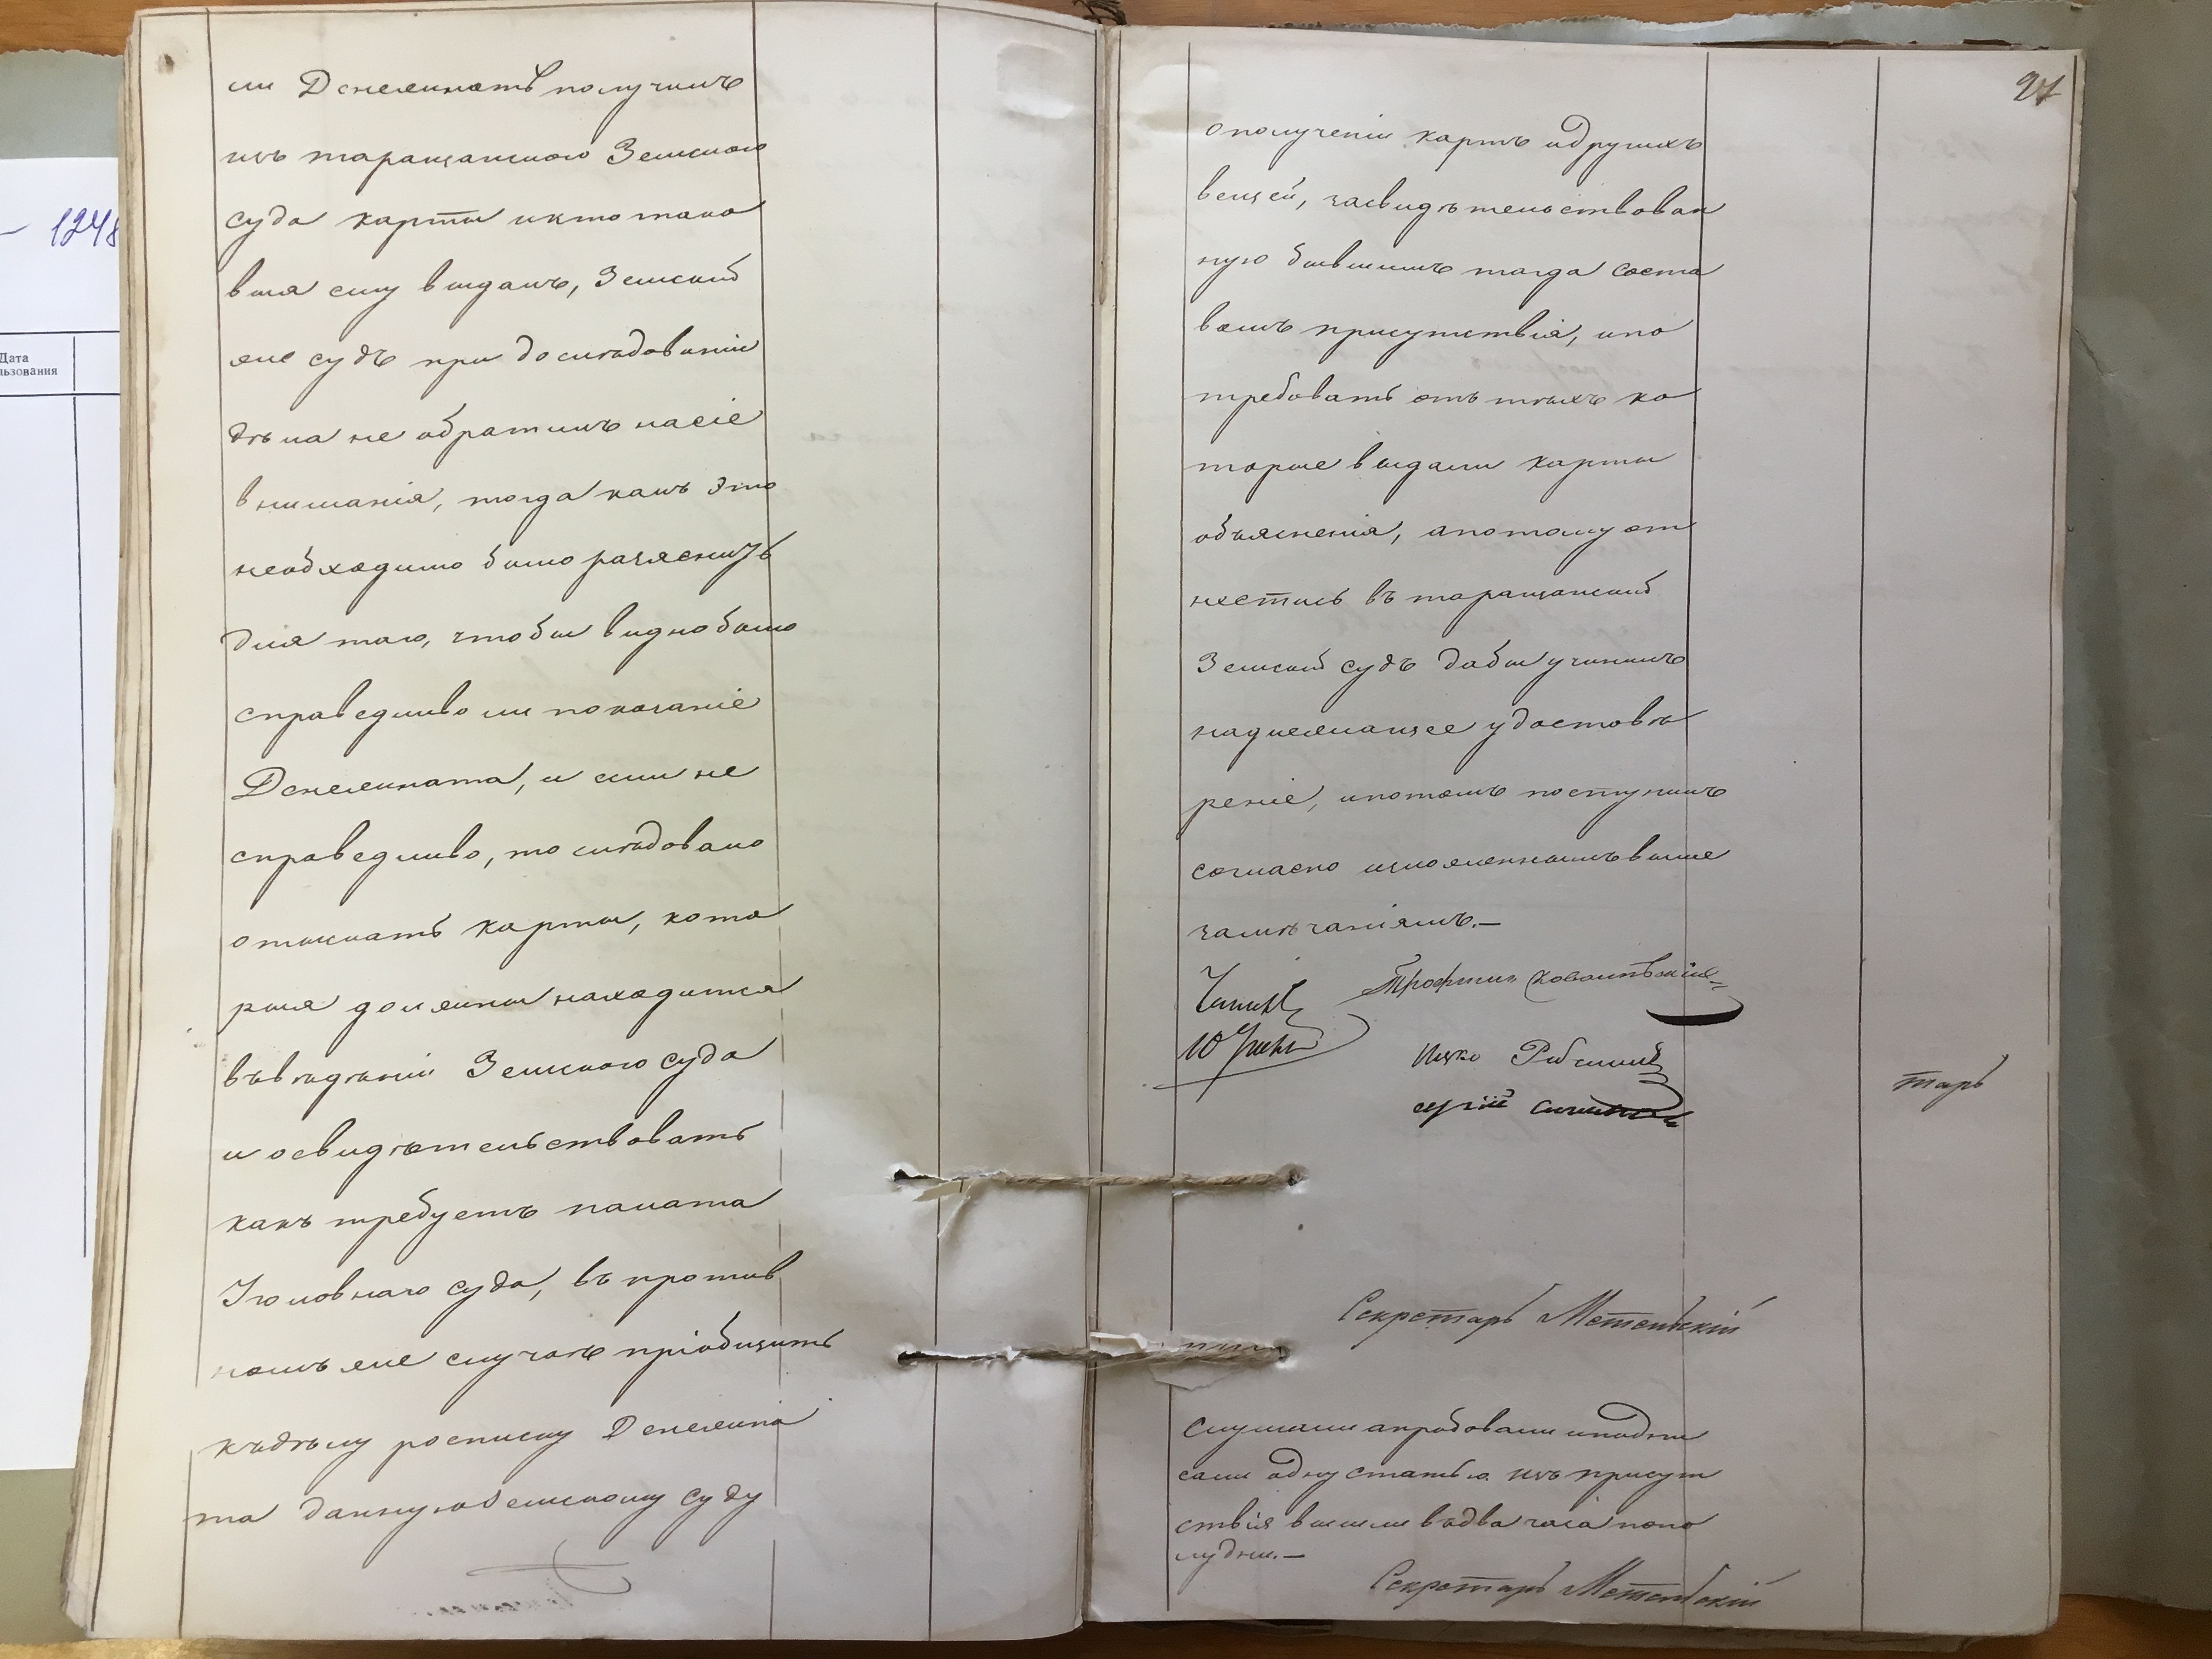 — 1248
Дата
льзования
ли Донежинатъ получилъ
изъ таращанскаго Земскаго
суда карты и кто тако
выя ему выдалъ, Земскій
же судъ при дослѣдованіи
дѣла не обратилъ на сіе
вниманія, тогда какъ это
необходимо было разяснить
для того, чтобы видно было
справедливо ли показаніе
и если не
справедливо, то слѣдовало
отыскать карты, кото
рыя должны находится
въ вѣдѣніи Земскаго суда
и освидѣтельствовать
какъ требуетъ палата
Уголовнаго суда, въ против
номъ же случаѣ пріобщить
къ дѣлу росписку
та данную Земскому суду
24
о полученіи картъ и другихъ
вещей, засвидѣтельствован
ную бывшимъ тогда соста
вомъ присутствія, и по
требовать отъ тѣхъ ко
торые выдали карты
объясненія, а потому от
нестись въ таращанскій
Земскій судъ дабы учинилъ
надлежащее удостовѣ
реніе, и потомъ поступилъ
согласно изложеннымъ выше
замѣчаніямъ.—
Трофимъ
тарь
Секретарь Метельскій
Слушали апробовали и подпи
сали одну статью. изъ присут
ствія вышли въ два часа попо
лудни.—
Секретарь Метельскій